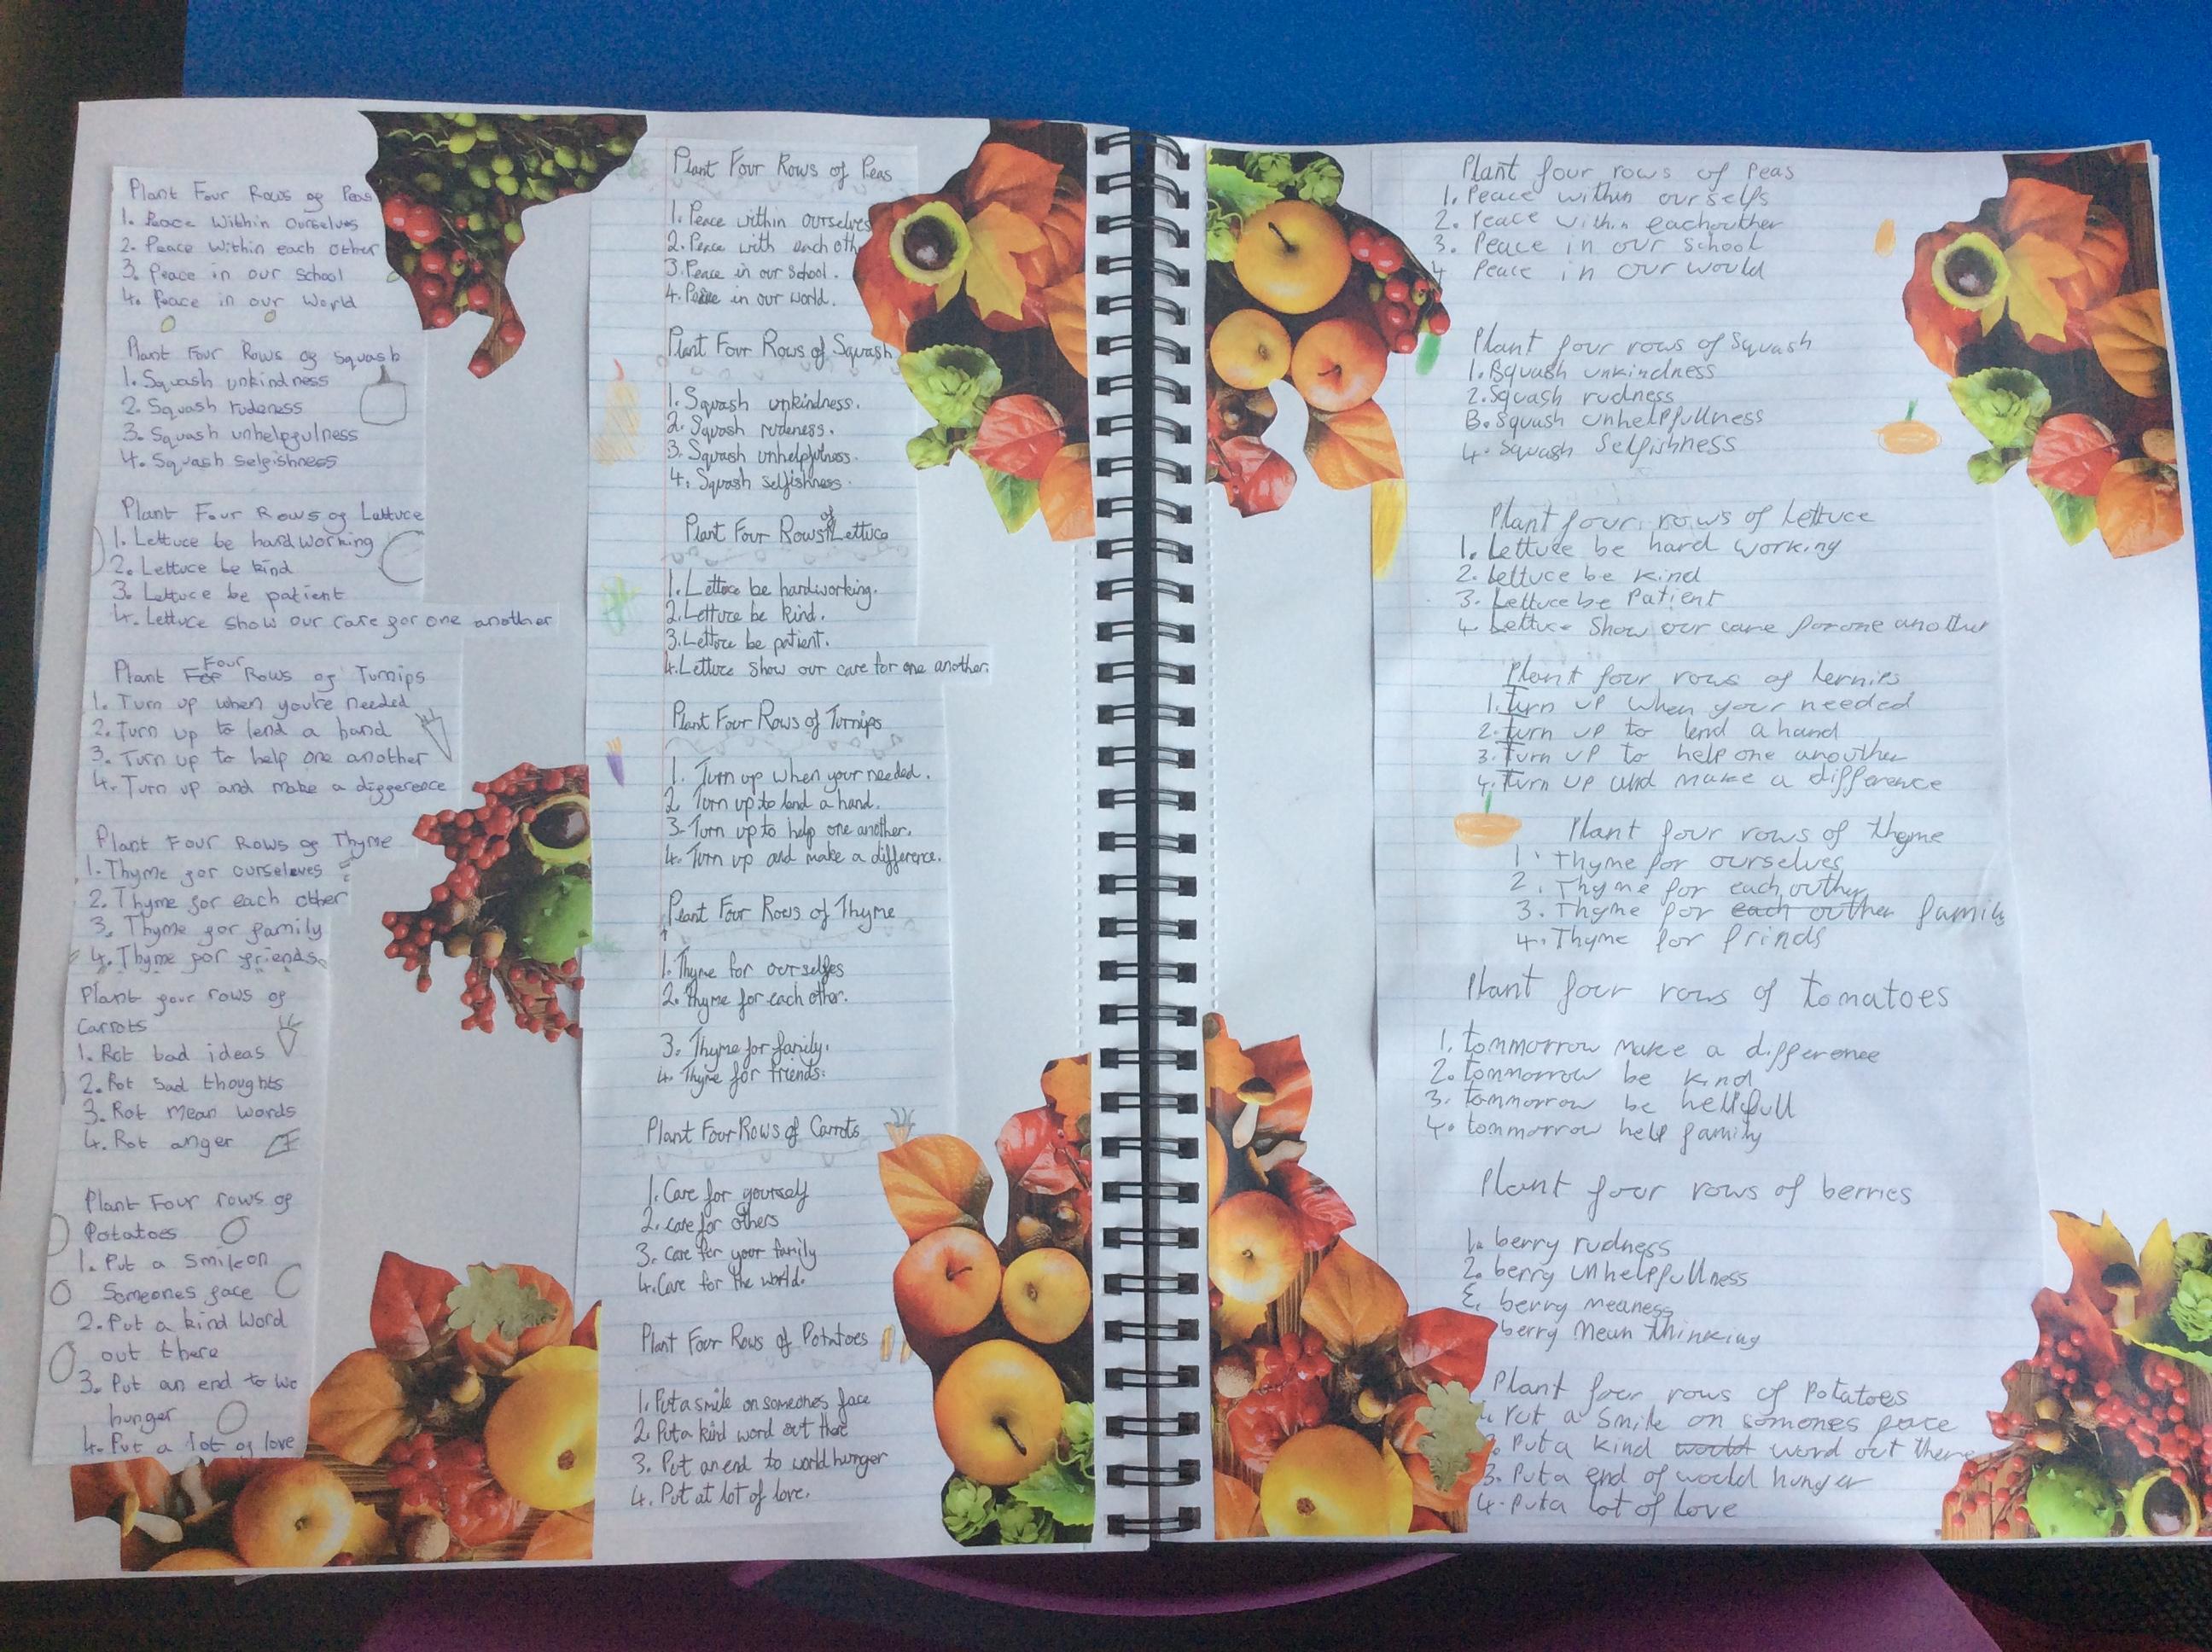 Plant Four Rows of Peas
1. Peace Within Ourselves
2. Peace Within each other
3. Peace in our School
4. Peace in our World
Plant Four Rows of Squash
1. Squash unkindness
2. Squash rudeness
3. Squash unhelpfulness
4. Squash selfishness
Plant Four Rows of Lettuce
1. Lettuce be hardworking
2. Lettuce be kind
3. Lettuce be patient
4. Lettuce show our care for one another
Plant Four Rows of Turnips
1. Turn up when you're needed
2. Turn up to lend a hand
3. Turn up to help one another
4. Turn up and make a difference
Plant Four Rows of Thyme
1. Thyme for ourseleves
2. Thyme for each other
3. Thyme for family
4. Thyme for friends
Plant four rows of
Carrots
1. Rot bad ideas
2. Rot sad thoughts
3. Rot mean words
4. Rot anger
Plant Four rows of
Potatoes
1. Put a smile on
Someones face
2. Put a kind word
out there
3. Put an end to wo
hunger
4. Put a lot of love
Plant Four Rows of Peas
1. Peace within ourselves
2. Peace with each oth
3. Peace in our school.
4. Peace in our world.
Plant Four Rows of Squash
1. Squash unkindness.
2. Squash rudeness.
3. Squash unhelpfulness.
4. Squash selfishness.
Plant Four Rows of Lettuce
1. Lettuce be hardworking.
2. Lettuce be kind.
3. Lettuce be patient.
4. Lettuce show our care for one another.
Plant Four Rows of Turnips
1. Turn up when your needed.
2. Turn up to lend a hand.
3. Turn up to help one another.
4. Turn up and make a difference.
Plant Four Rows of Thyme
1. Thyme for ourselfes
2. Thyme for each other.
3. Thyme for family.
4. Thyme for friends.
Plant Four Rows of Carrots
1. Care for yourself
2. care for others
3. Care for your family
4. Care for the world.
Plant Four Rows of Potatoes
1. Put a smile on someones face
2. Put a kind word out there
3. Put an end to world hunger
4. Put at lot of love.
Plant four rows of Peas
1. Peace within our selfs
2. Peace within eachouther
3. Peace in our school
4 Peace in our would
Plant four rows of Squash
1. Squash unkindness
2. Squash rudness
3. Squash unhelpfullness
4. Squash Selfishness
Plant four rows of lettuce
1. Lettuce be hard working
2. Lettuce be kind
3. Lettuce be Patient
4. Lettuce Show our care for one another
Plant four rows of
1. Turn up when your needed
2. turn up to lend a hand
3. Turn up to help one anouther
4. Turn up and make a difference
Plant four rows of thyme
1. Thyme for ourselves
2. Thyme for each outher
3. Thyme for each outher family
4. Thyme for frinds
Plant four rows of tomatoes
1. tommorrow make a difference
2. tommorrow be kind
3. tommorrow be helpfull
4. tommorrow help family
Plant four rows of berries
1. berry rudness
2. berry unhelpfullness
3. berry meaness
berry mean thinking
Plant four rows of Potatoes
1. Put a Smile on somones face
2. Put a kind would word out there
3. Put a end of would hunger
4. Put a lot of love